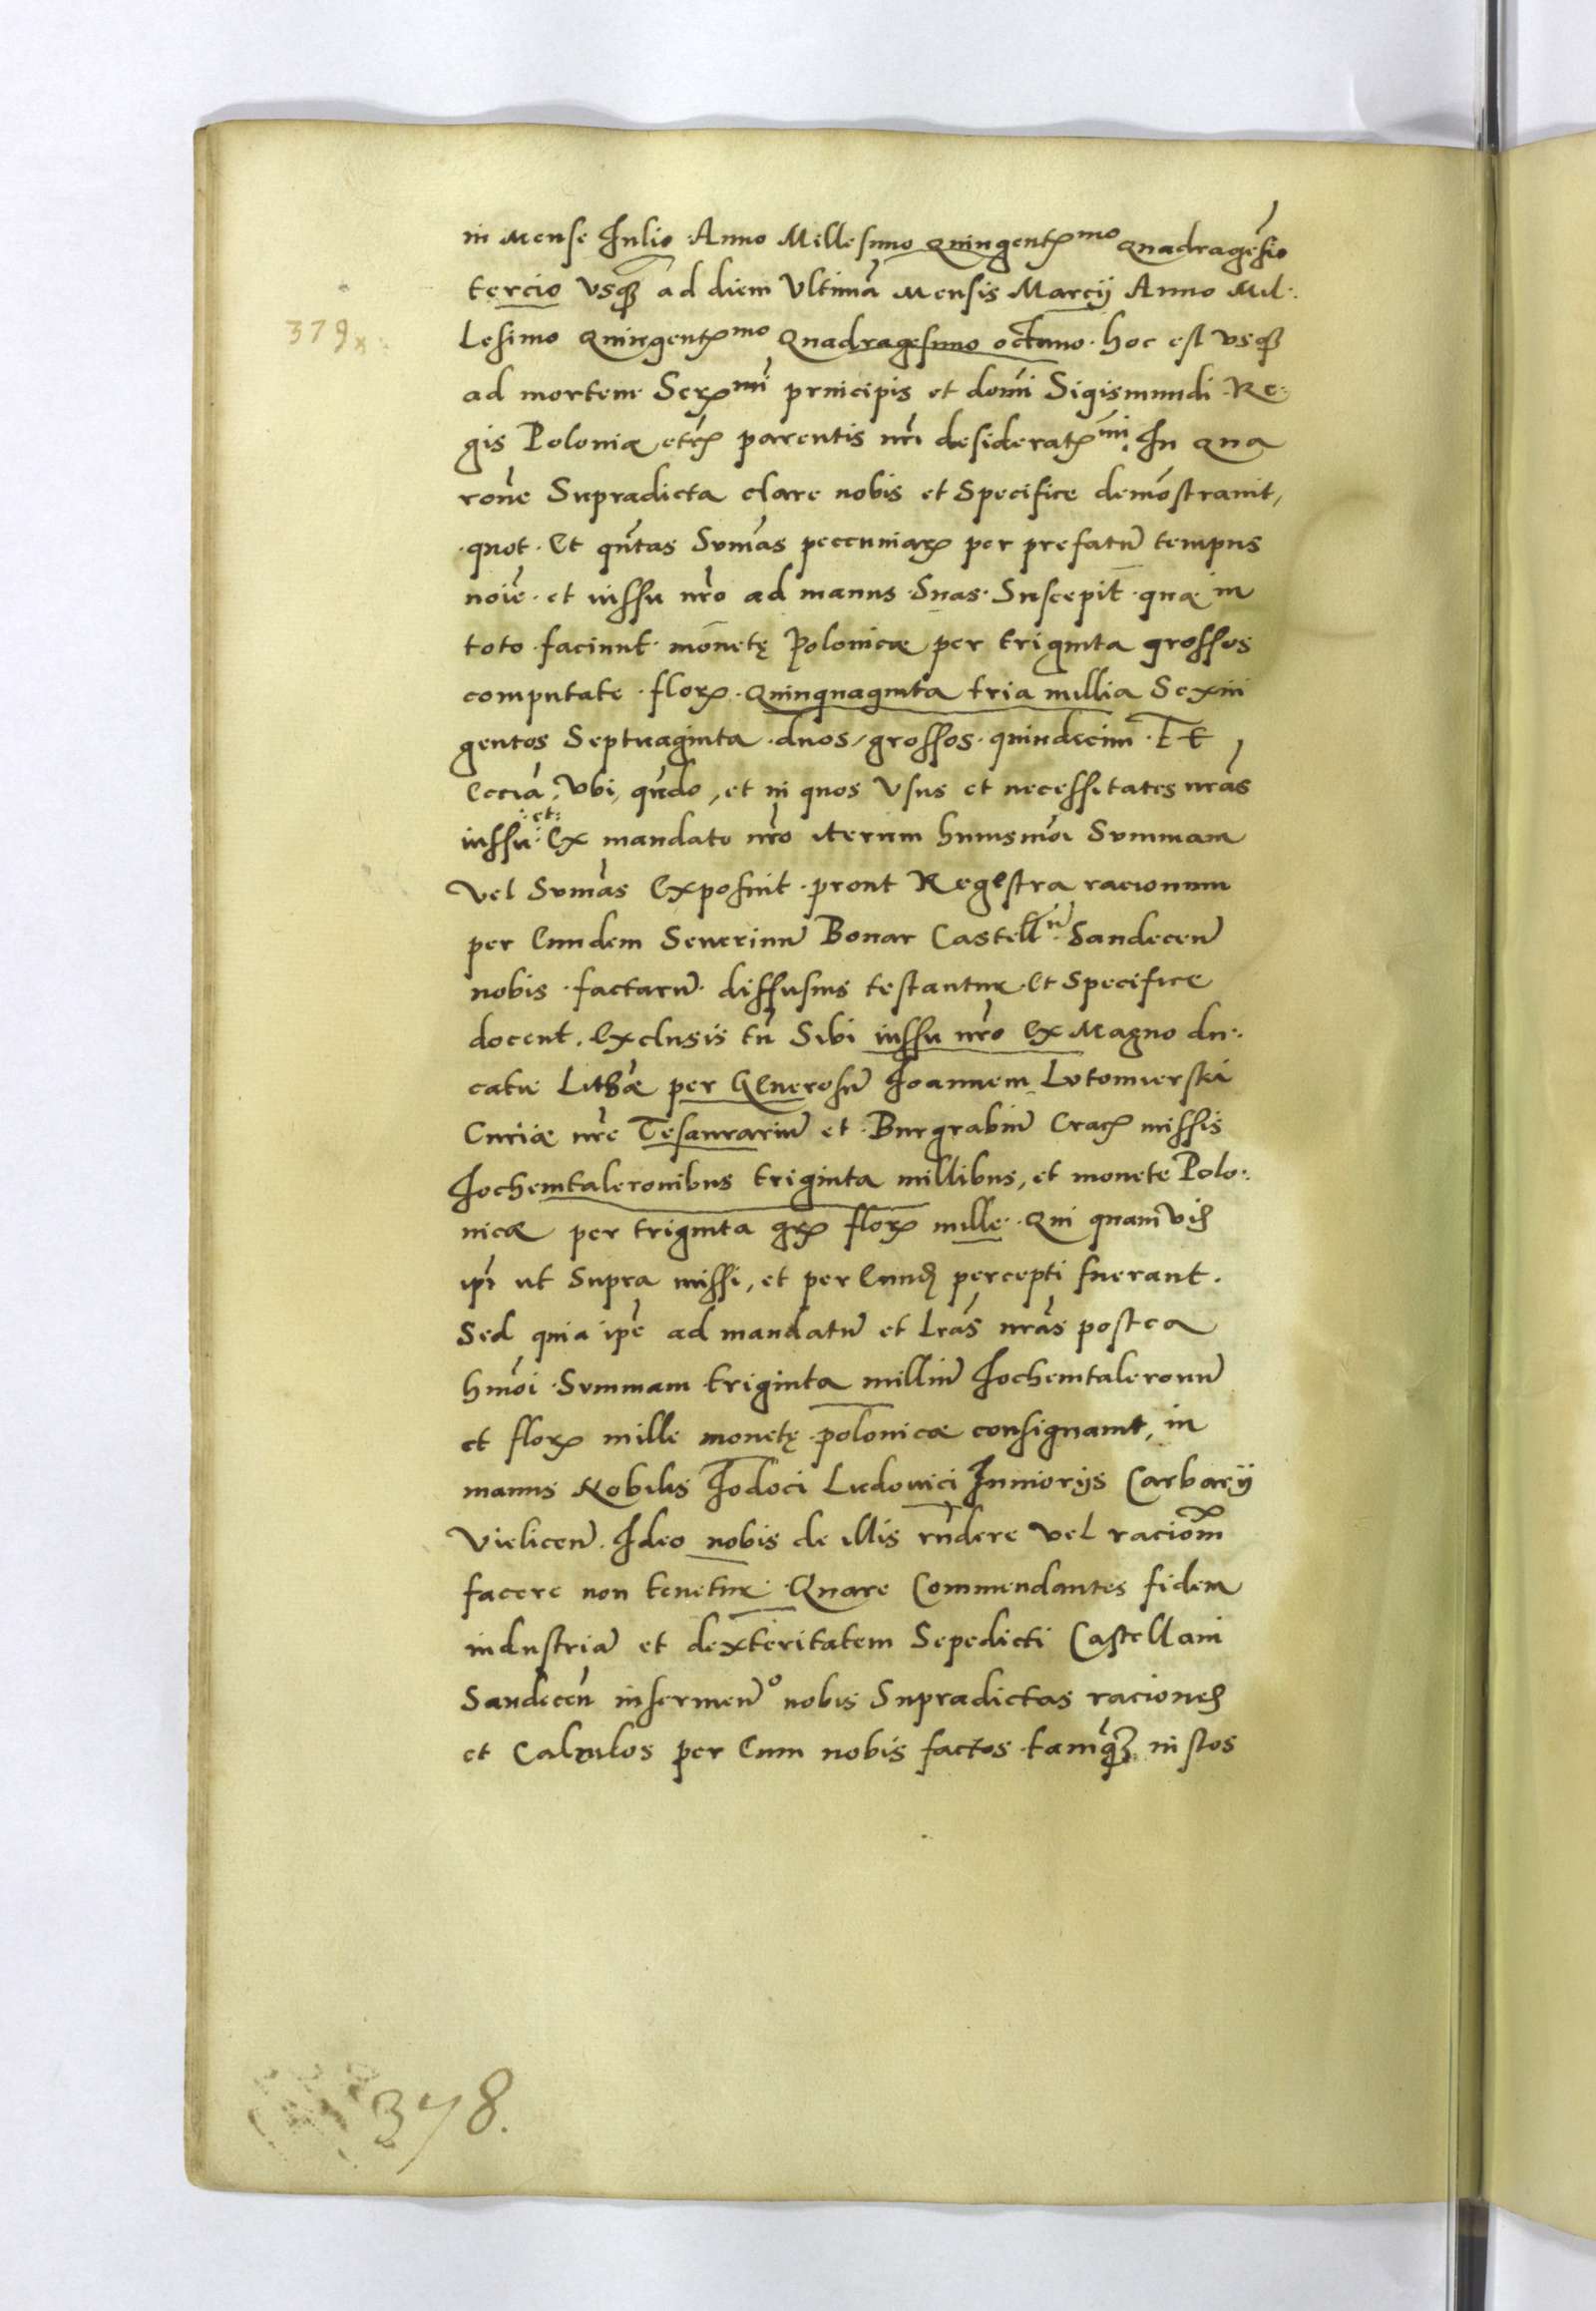 in mense Iulio Anno Millesimo Quingentꝭmo Quadragesīo
tercio vsqꝫ ad diem Vltimā mensis Marcij Anno Mil:
379x:
lesimo Quingentꝭmo Quadragesimo octauo. hoc est vsqꝫ
ad mortem Serꝭmi principis et domī Sigismundi Re:
gis Poloniæ etcꝭ parentis nrī desideratꝭmi. In qua
rōne Supradicta clare nobis et Specifice demōstrauit,
quot. Et qūtas Sumās peccuniarꝝ per prefatū tempus
noīe. et iussu nrō ad manus Suas Suscepit. quæ in
toto faciunt monetę Polonicæ per triginta grossos
computate. florꝝ. Quinquaginta tria millia Sexin
gentos Septuaginta duos, grossos quindecim. Et
eciā, Vbi, qūdo, et in quos Vsus et necessitates nrās
:et:
iussu Ex mandato nrō iterum huiusmōi Summam
vel Sumās Exposuit. prout Regestra racionum
per Eundem Seuerinū Bonar Castellnū Sandeceñ
nobis factarū diffusius testantur. Et Specifice
docent. Exclusis tn̄ Sibi iussu nrō Ex Magno du:
catu Lithæ per Generosū Ioannem Lutomierski
Curiæ nrē Tesaurariū et Burgrabiū Cracꝭ missis
Iochemtaleronibus triginta millibus, et monete Polo:
nicæ per triginta grꝭ florꝝ mille. Qui quamvis
ipī ut Supra missi, et per Eundꝭ percepti fuerant.
Sed quia ipē ad mandatū et lrās nrās postea
hmōi Summam triginta milliū Iochemtaleronū
et florꝝ mille monetę polonicæ consignauit, in
manus Nobilis Iodoci Ludouici Iunioris Carbarij
Vieliceñ. Ideo nobis de illis rn̄dere vel raciom̄
facere non tenetur. Quare Commendantes fidem
industriā et dexteritatem Sepedicti Castellani
Sandeceñ inseruieñ nobis Supradictas raciones
et Calculos per Eum nobis factos tamqꝫ iustos
378.